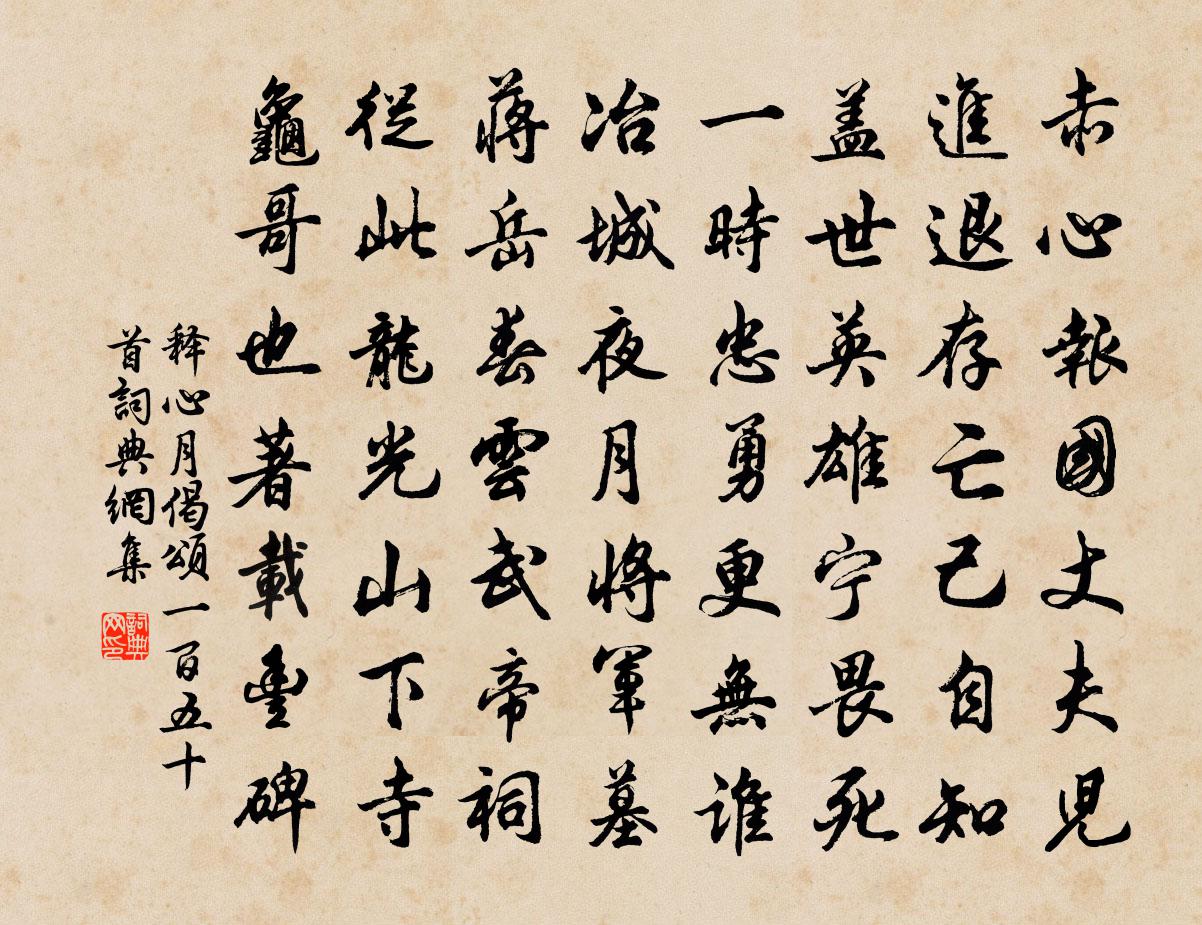 赤心報國丈夫児
進退存亡己自知
盖世英雄宁畏死
一時忠勇更無誰
冶城夜月將軍墓
蔣岳春雲武帝祠
從此龍光山下寺
龜哥也著載豐碑
释心月偈頌一百五十
首詞典網集
詞典
网印